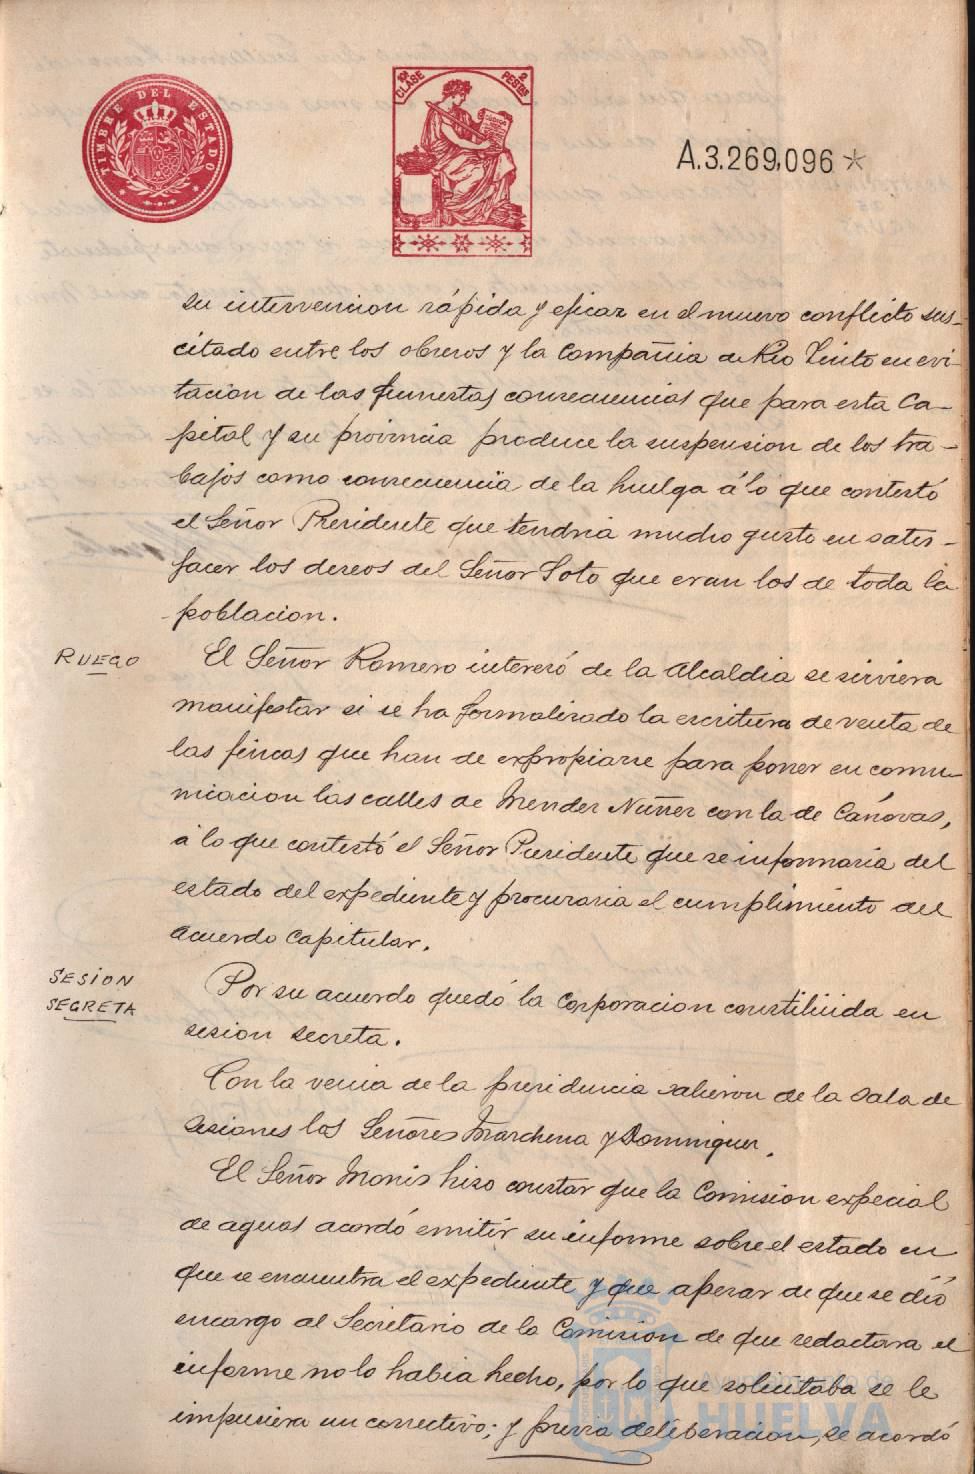 TIMBRE DEL ESTADO
10ª CLASE
2 PESETAS
CÓDIGO
A.3.269,096 *
su intervencion rápida y eficaz en el nuevo conflicto sus-
citado entre los obreros y la Compañia de Rio Tinto en evi-
tacion de las funestas consecuencias que para esta Ca-
pital y su provincia produce la suspension de los tra-
bajos como consecuencia de la huelga á lo que contestó
el Señor Presidente que tendria mucho gusto en satis-
facer los deseos del Señor Soto que eran los de toda la
poblacion.
RUEGO
El Señor Romero interesó de la Alcaldia se sirviera
manifestar si se ha formalizado la escritura de venta de
las fincas que han de expropiarse para poner en comu-
nicacion las calles de Mendez Nuñez con la de Cánovas,
á lo que contestó el Señor Presidente que se informaria del
estado del expediente y procuraria el cumplimiento del
acuerdo capitular.
SESION
SEGRETA
Por su acuerdo quedó la Corporacion constituida en
sesion secreta.
Con la venia de la presidencia salieron de la Sala de
sesiones los Señores Marchena y Dominguez.
El Señor Monis hizo constar que la Comision especial
de aguas acordó emitir su informe sobre el estado en
que se encuentra el expediente y que apesar de que se dió
encargo al Secretario de la Comision de que redactara el
informe no lo habia hecho, por lo que solicitaba se le
impusiera un correctivo; y previa deliberacion, se acordó
Ayuntamiento de
HUELVA